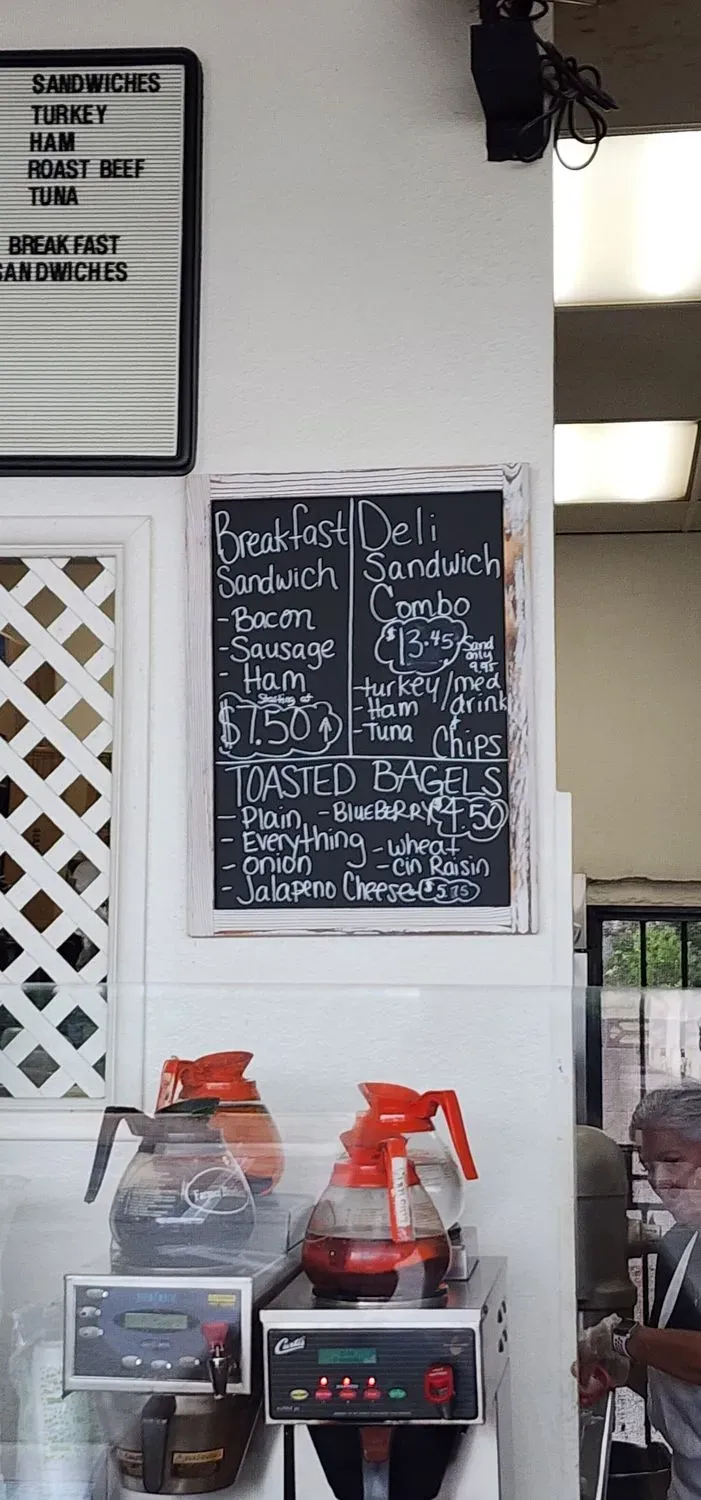 SANDWICHES
TURKEY
HAM
ROAST BEEF
TUNA
BREAKFAST
SANDWICHES
Breakfast
Sandwich
-Bacon
-Sausage
- Ham
Starting at
$7.50 ↑
Deli
Sandwich
Combo
$13.45
Sand
only
9.95
-turkey/med
-Ham /drink
-Tuna & Chips
TOASTED BAGELS
- Plain -BLUEBERRY $4.50
- Everything -wheat
- onion -cin Raisin
- Jalapeno Cheese $5.75
Curtis